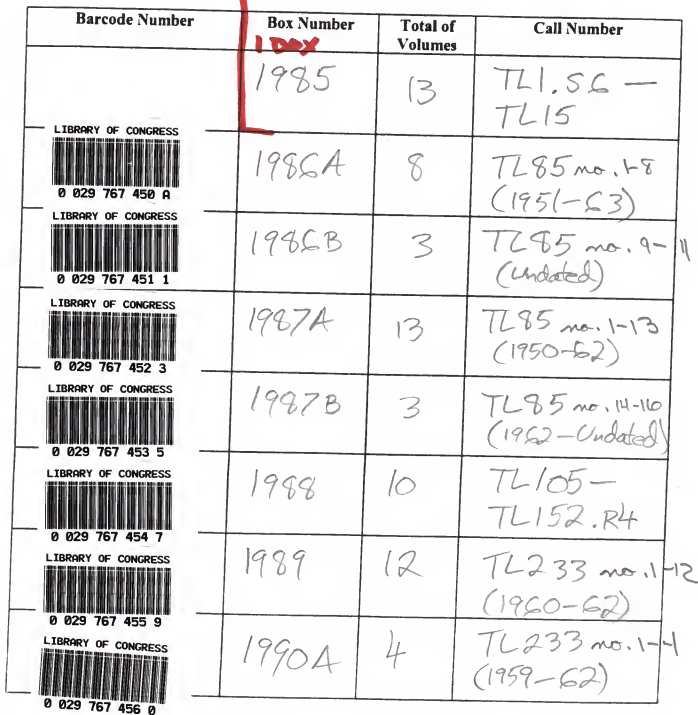 Barcode Number Box Number Total of Volumes Call Number
1 BOX
1985 13 TL1.S6 —
TL15
LIBRARY OF CONGRESS
0 029 767 450 A
1986A 8 TL85 no. 1-8
(1951-63)
LIBRARY OF CONGRESS
0 029 767 451 1
1986B 3 TL85 no. 9-11
(Undated)
LIBRARY OF CONGRESS
0 029 767 452 3
1987A 13 TL85 no. 1-13
(1950-62)
LIBRARY OF CONGRESS
0 029 767 453 5
1987B 3 TL85 no. 14-16
(1962-Undated)
LIBRARY OF CONGRESS
0 029 767 454 7
1988 10 TL105-
TL152.R4
LIBRARY OF CONGRESS
0 029 767 455 9
1989 12 TL233 no. 1-12
(1960-62)
LIBRARY OF CONGRESS
0 029 767 456 0
1990A 4 TL233 no. 1-4
(1959-62)